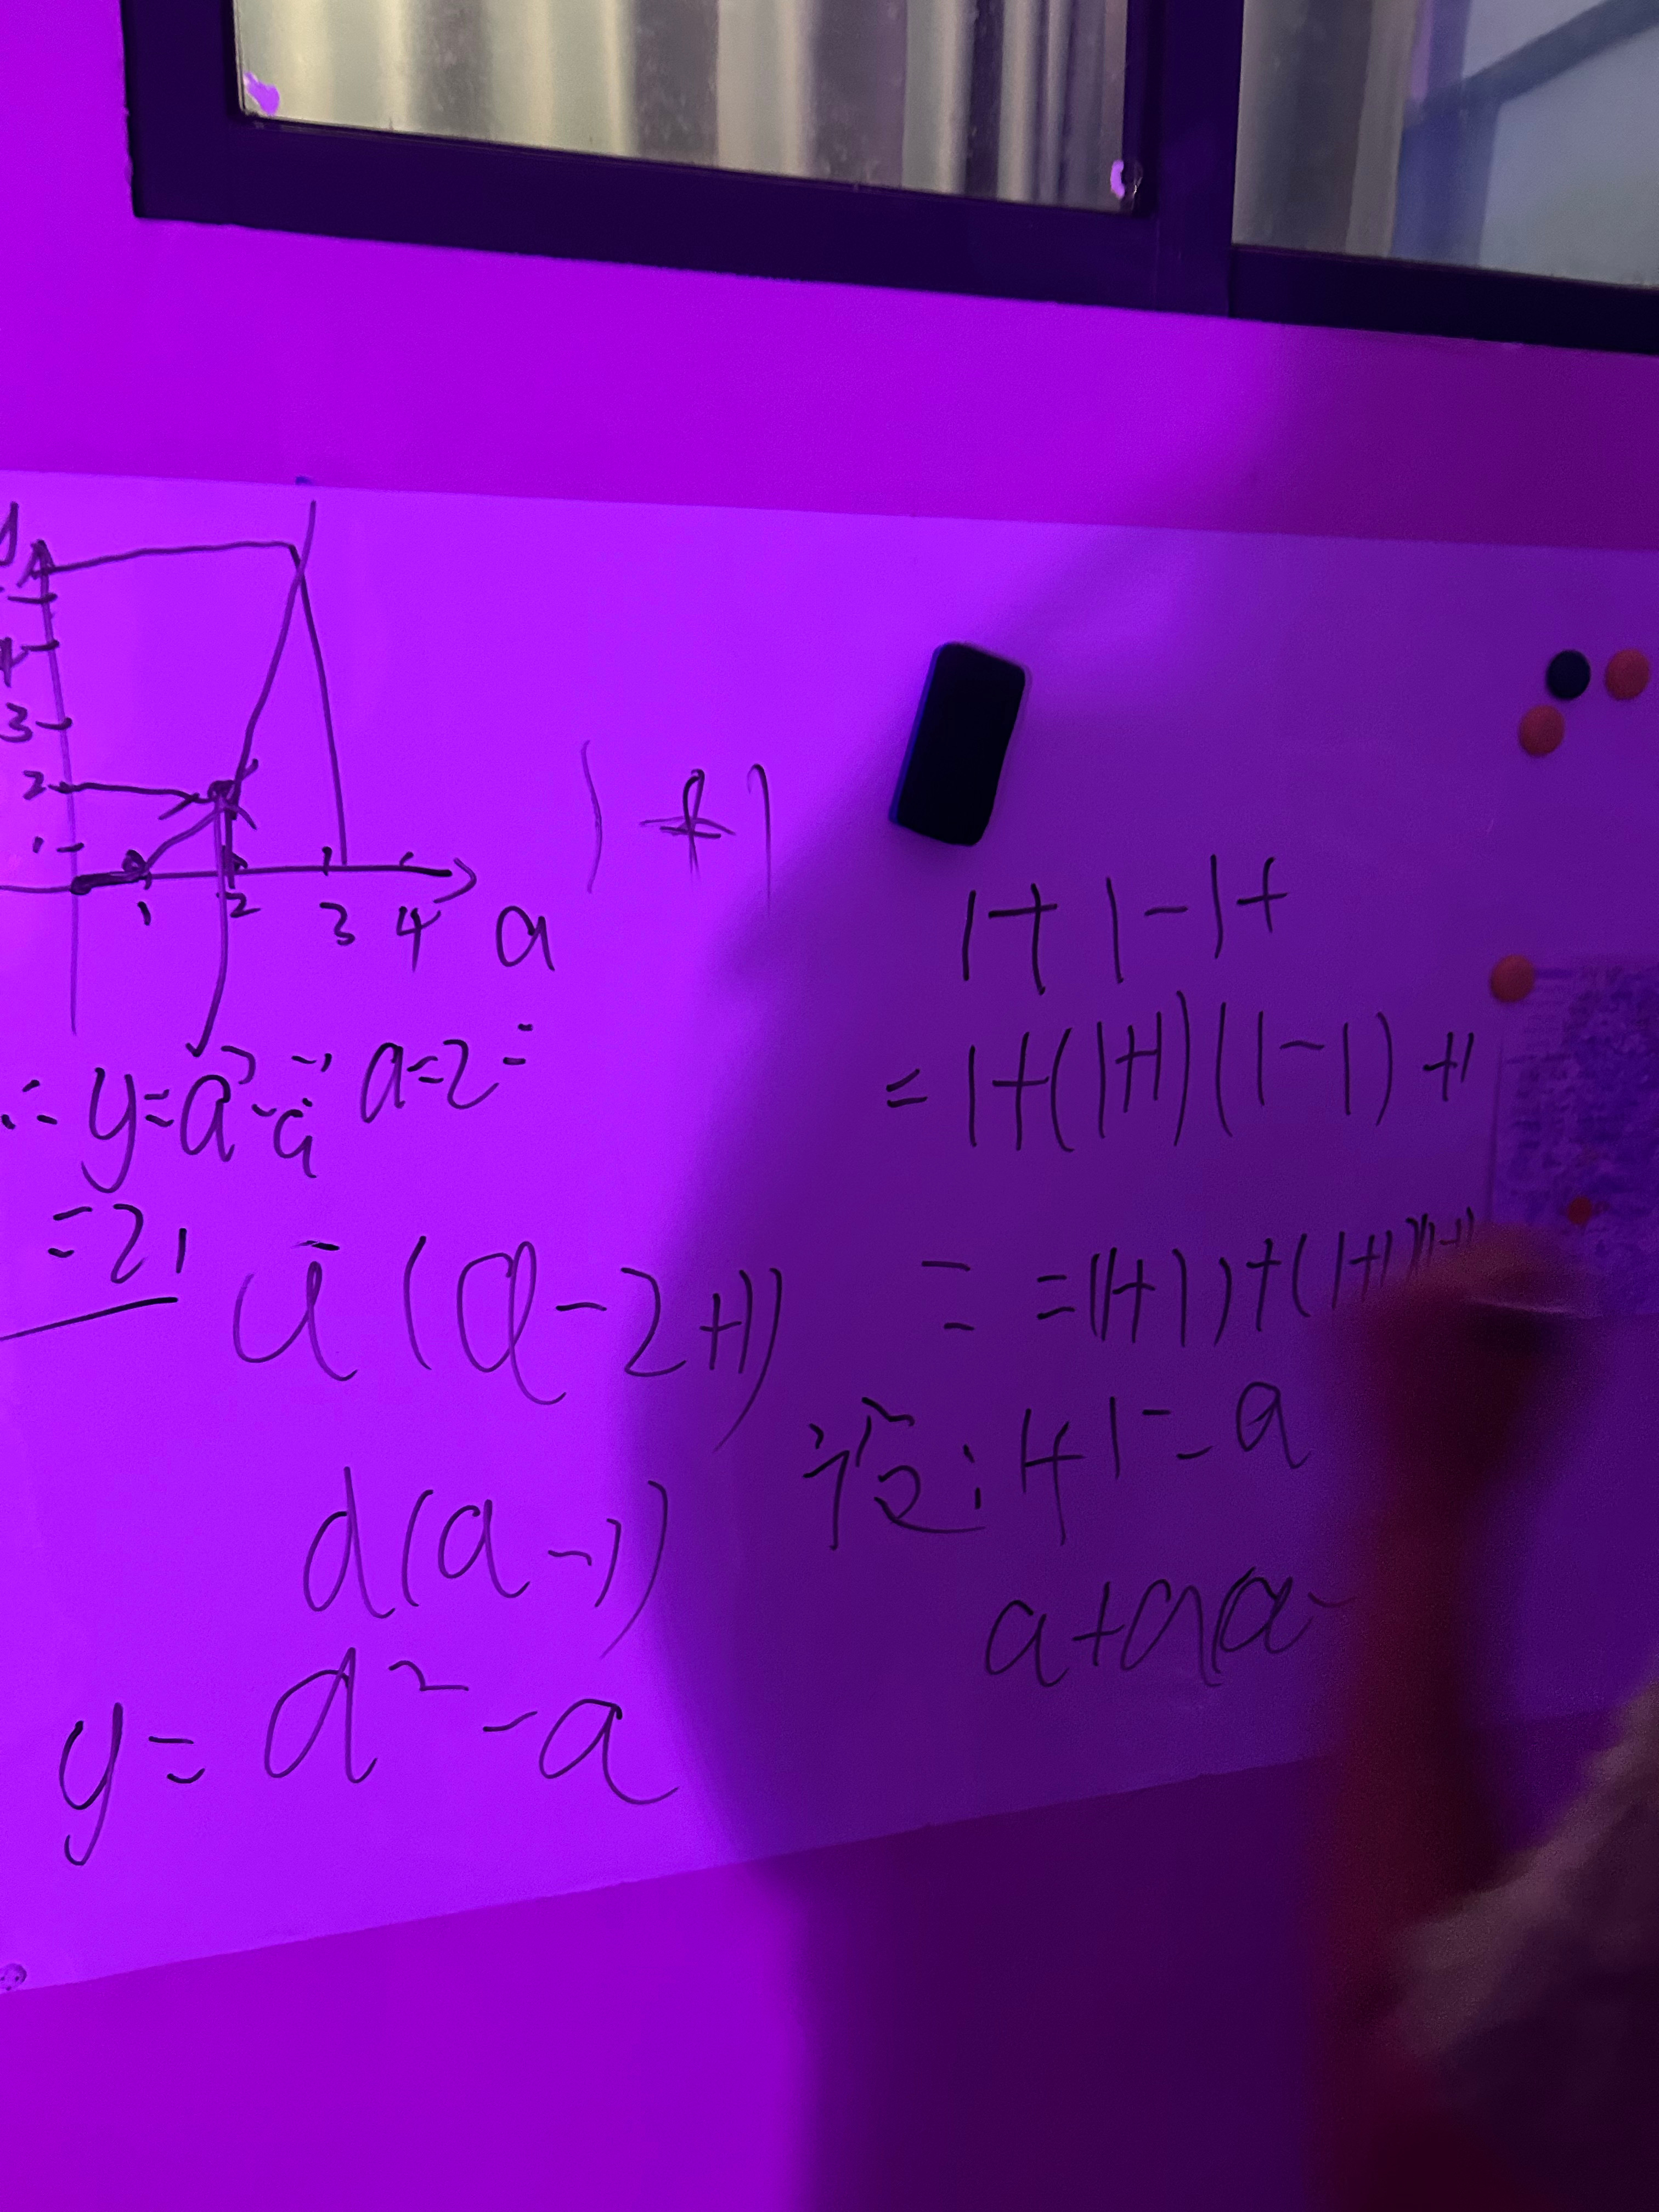 4
3
2
1
1 2 3 4 a
1+1
∴ y=a²-a a=2=
=2
a(a-2+1)
a(a-1)
y=a²-a
1+1-1+
=1+(1+1)(1-1)+1
= =(1+1)+(1+1)(1-1)
设:1+1=a
a+a(a-